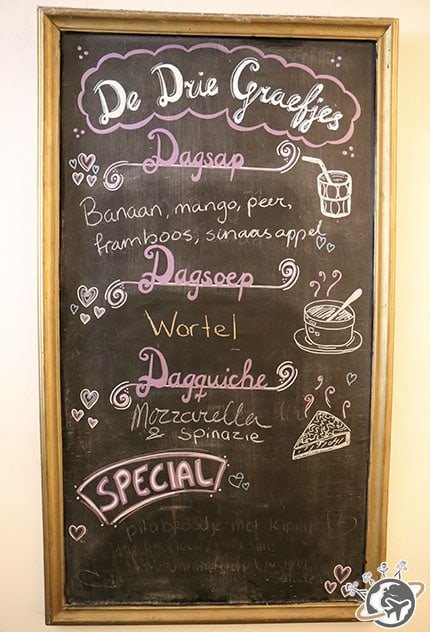 De Drie Graefjes
Dagsap
Banaan, mango, peer,
framboos, sinaasappel
Dagsoep
Wortel
Dagquiche
Mozzarella
& Spinazie
SPECIAL
pitabroodje met kip